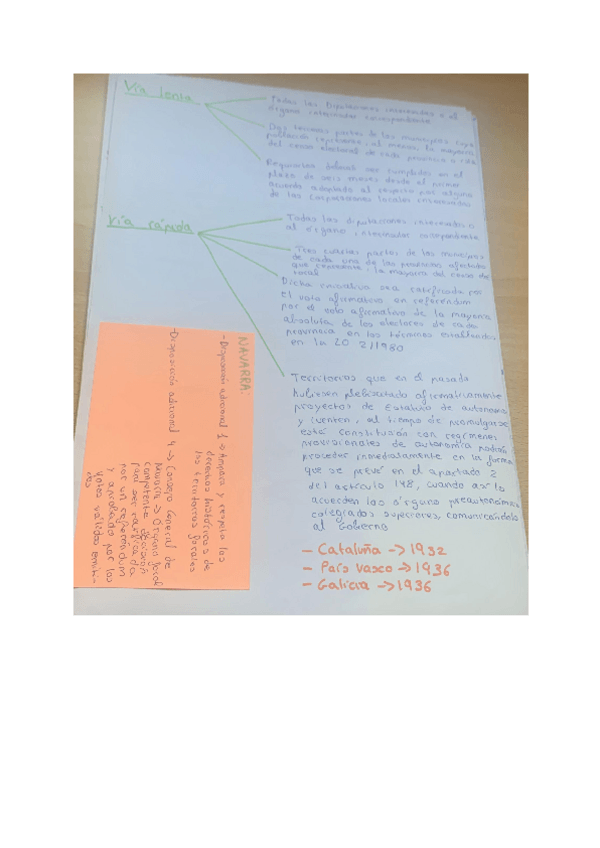 Vía lenta
Todas las Diputaciones interesadas o el
órgano interinsular correspondiente
Dos terceras partes de los municipios cuya
población represente, al menos, la mayoría
del censo electoral de cada provincia o isla
Requisitos deberán ser cumplidos en el
plazo de seis meses desde el primer
acuerdo adoptado al respecto por alguna
de las Corporaciones locales interesadas
Vía rápida
Todas las diputaciones interesadas o
al órgano interinsular correspondiente
Tres cuartas partes de los municipios
de cada una de las provincias afectadas
que represente la mayoría del censo de
Dicha iniciativa sea ratificada por
el voto afirmativo en referéndum
por el voto afirmativo de la mayoría
absoluta de los electores de cada
provincia en los términos establecidos
en la LO 2/1980
Territorios que en el pasado
hubiesen plebiscitado afirmativamente
proyectos de Estatuto de autonomía
y cuenten, al tiempo de promulgarse
esta constitución con regímenes
provisionales de autonomía podrán
proceder inmediatamente en la forma
que se prevé en el apartado 2
del artículo 148, cuando así lo
acuerden los órganos preautonómicos
colegiados superiores, comunicándolo
al Gobierno
- Cataluña -> 1932
- País Vasco -> 1936
- Galicia -> 1936
NAVARRA:
- Disposición adicional 1 -> Ampara y respeta los
derechos históricos de
los territorios forales
- Disposición adicional 4 -> Consejo General de
Navarra -> Órgano foral
competente decisión
para ser ratificada
por un referéndum
y aprobado por los
votos válidos emiti-
dos